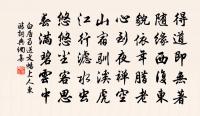 得道即無著
隨緣西復東
貌依年腊老
心到夜禪空
山宿馴溪虎
江行濾水虫
悠悠塵客思
春滿碧雲中
白居易送文暢上人東
游詞典網集